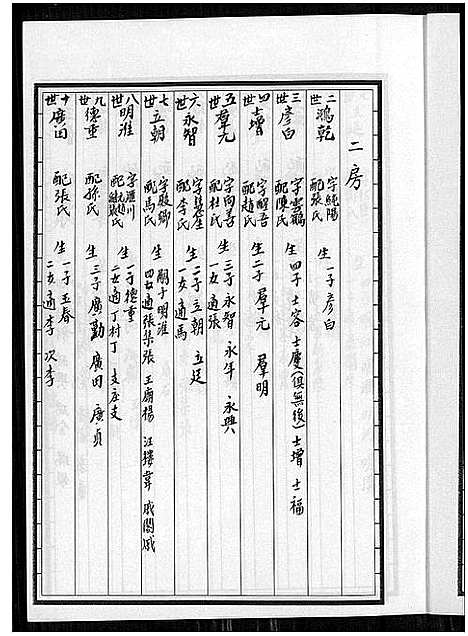 二房
二世 鴻乾 字純陽 配張氏 生 一子彥白
三世 彥白 字雲鶴 配陳氏 生 四子 士容 士慶(俱無後) 士增 士福
四世 士增 字醒吾 配趙氏 生 二子 羣元 羣明
五世 羣元 字向善 配杜氏 生 三子 永智 永年 永興 一女適張
六世 永智 配李氏 生 二子 立朝 立廷 一女適馬
七世 立朝 字殿卿 配馬氏 生 嗣子明淮 四女適張柒張 王廟楊 汪樓韋 戚閣戚
八世 明淮 字滙川 配趙氏 生 一子德重 二女適丁村丁 支庄支
九世 德重 配孫氏 生 三子 廣勤 廣田 廣貞
十世 廣田 配張氏 生 一子玉春 二女適李 次李